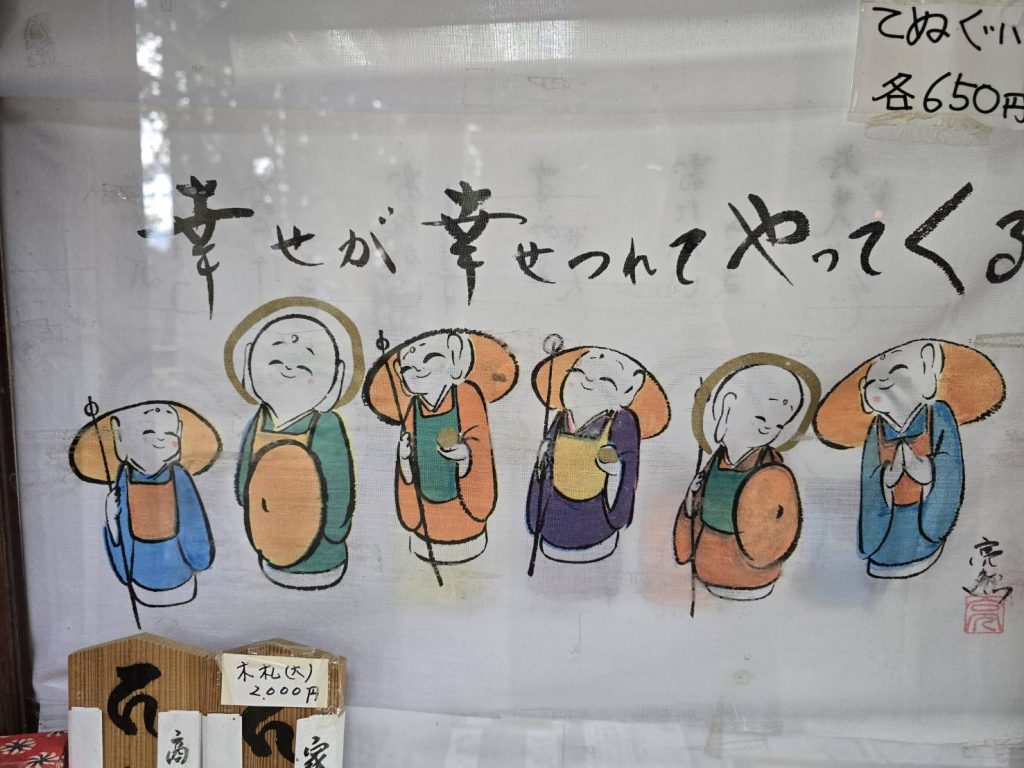 てぬぐい
各650円
幸せが幸せつれてやってくる
木札(大)
2,000円
商
家